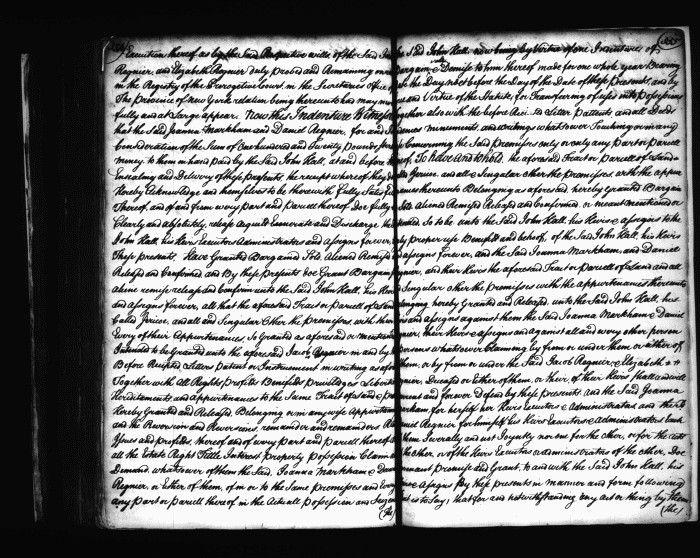 Execution thereof as by the Said Respective wills of the Said
Regnier, and Elizabeth Regnier duly proved and Remaining
in the Registry of the Prerogative Court in the Secretaries Office
The province of New York relation being thereunto had may more
fully and at Large appear. Now this Indenture Witnesseth
that the Said Joanna Markham and Daniel Regnier, for and in
Consideration of the Sum of One hundred and Twenty Pounds
money to them in hand paid by the Said John Hall, at and before the
Ensealing and Delivery of these presents the receipt whereof they do
hereby Acknowledge and themselves to be therewith fully Satisfied
Thereof, and of and from every part and parcell thereof Doe fully
Clearly and absolutely, release acquitt Exonerate and Discharge the
John Hall his Heirs Executors Administrators and assigns forever, by
These presents, Have Granted Bargained Sold Aliened Remised
Released and Confirmed and By these presents doe Grant Bargain
aliene remise release and Confirm unto the Said John Hall, his Heirs
and assigns forever, all that the aforesaid Tract or Parcell of Land
Called and all and Singular other the premisses with their
Every of their Appurtenances So Granted as aforesaid or mentioned
Intended to be Granted unto the aforesaid Jacob Regnier in and by
Before Recited Letters Patent or Instrument in writing as afores
Together with all Rights profits Benefits priviledges
Hereditaments and appurtenances to the Same Tract of Land
hereby Granted and Released, Belonging or in any wise appertaining
and the Reversion and Reversions remainder and remainders
Issues and profits, thereof and of every part and parcell thereof
all the Estate Right Title Interest property possession Claim
Demand whatsoever of them the Said, Joanna Markham &
Regnier, or Either of them, of in or to the Same Premisses and Every
any part or parcell thereof in the Actuall possession and
(the)
the Said John Hall now being by Virtue of one Indenture of
Bargain & Demise to him thereof made for one whole year Bearing
Date the Day next before the Day of the Date of these presents, and by
and Virtue of the Statute, for Transferring of uses into possession
Together also with the before Recited Letter Pattents, and all Deeds
Evidences Minuments, and writings whatsoever Touching or in any
Concerning the Said premisses only or only any part or parcell
thereof. To have and to hold, the aforesaid Tract or Parcell of Land
and all & Singular other the premisses, with the appur
tenances thereunto Belonging as aforesaid, hereby Granted Bargain
Sold Aliened Remised Released and Confirmed, or meant mentioned or
Intended, So to be unto the Said John Hall, his Heirs & assigns to the
only proper use Benefit and behoof, of the Said John Hall, his Heirs
and assigns forever, and the Said Joanna Markham, and Daniel
Regnier, and their Heirs the aforesaid Tract or Parcell of Land and all
Singular other the premisses with the appurtenances thereunto
Belonging hereby Granted and Released, unto the Said John Hall, his
Heirs and assigns against them the Said Joanna Markham & Daniel
Regnier, their Heirs & assigns and against all and every other person
Persons whatsoever Claiming by from or under them or either of
them, or by from or under the Said Jacob Regnier & Elizabeth
Regnier, Deceased or Either of them, or their, of their Heirs shall and will
Warrant and forever defend by these presents and the Said Joanna
Markham, for herself her Heirs Executors & Administrators and the
Daniel Regnier for himself his Heirs Executors & Administrators
Each of them Severally and not Joyntly nor one for the other, or for the acts
of the other, or of their Executors & administrators of the other, Doe
Covenant promise and Grant, to and with the Said John Hall, his
Heirs & assigns By these presents in manner and form following
that is to Say; that for and notwithstanding any act or thing by them
(the)